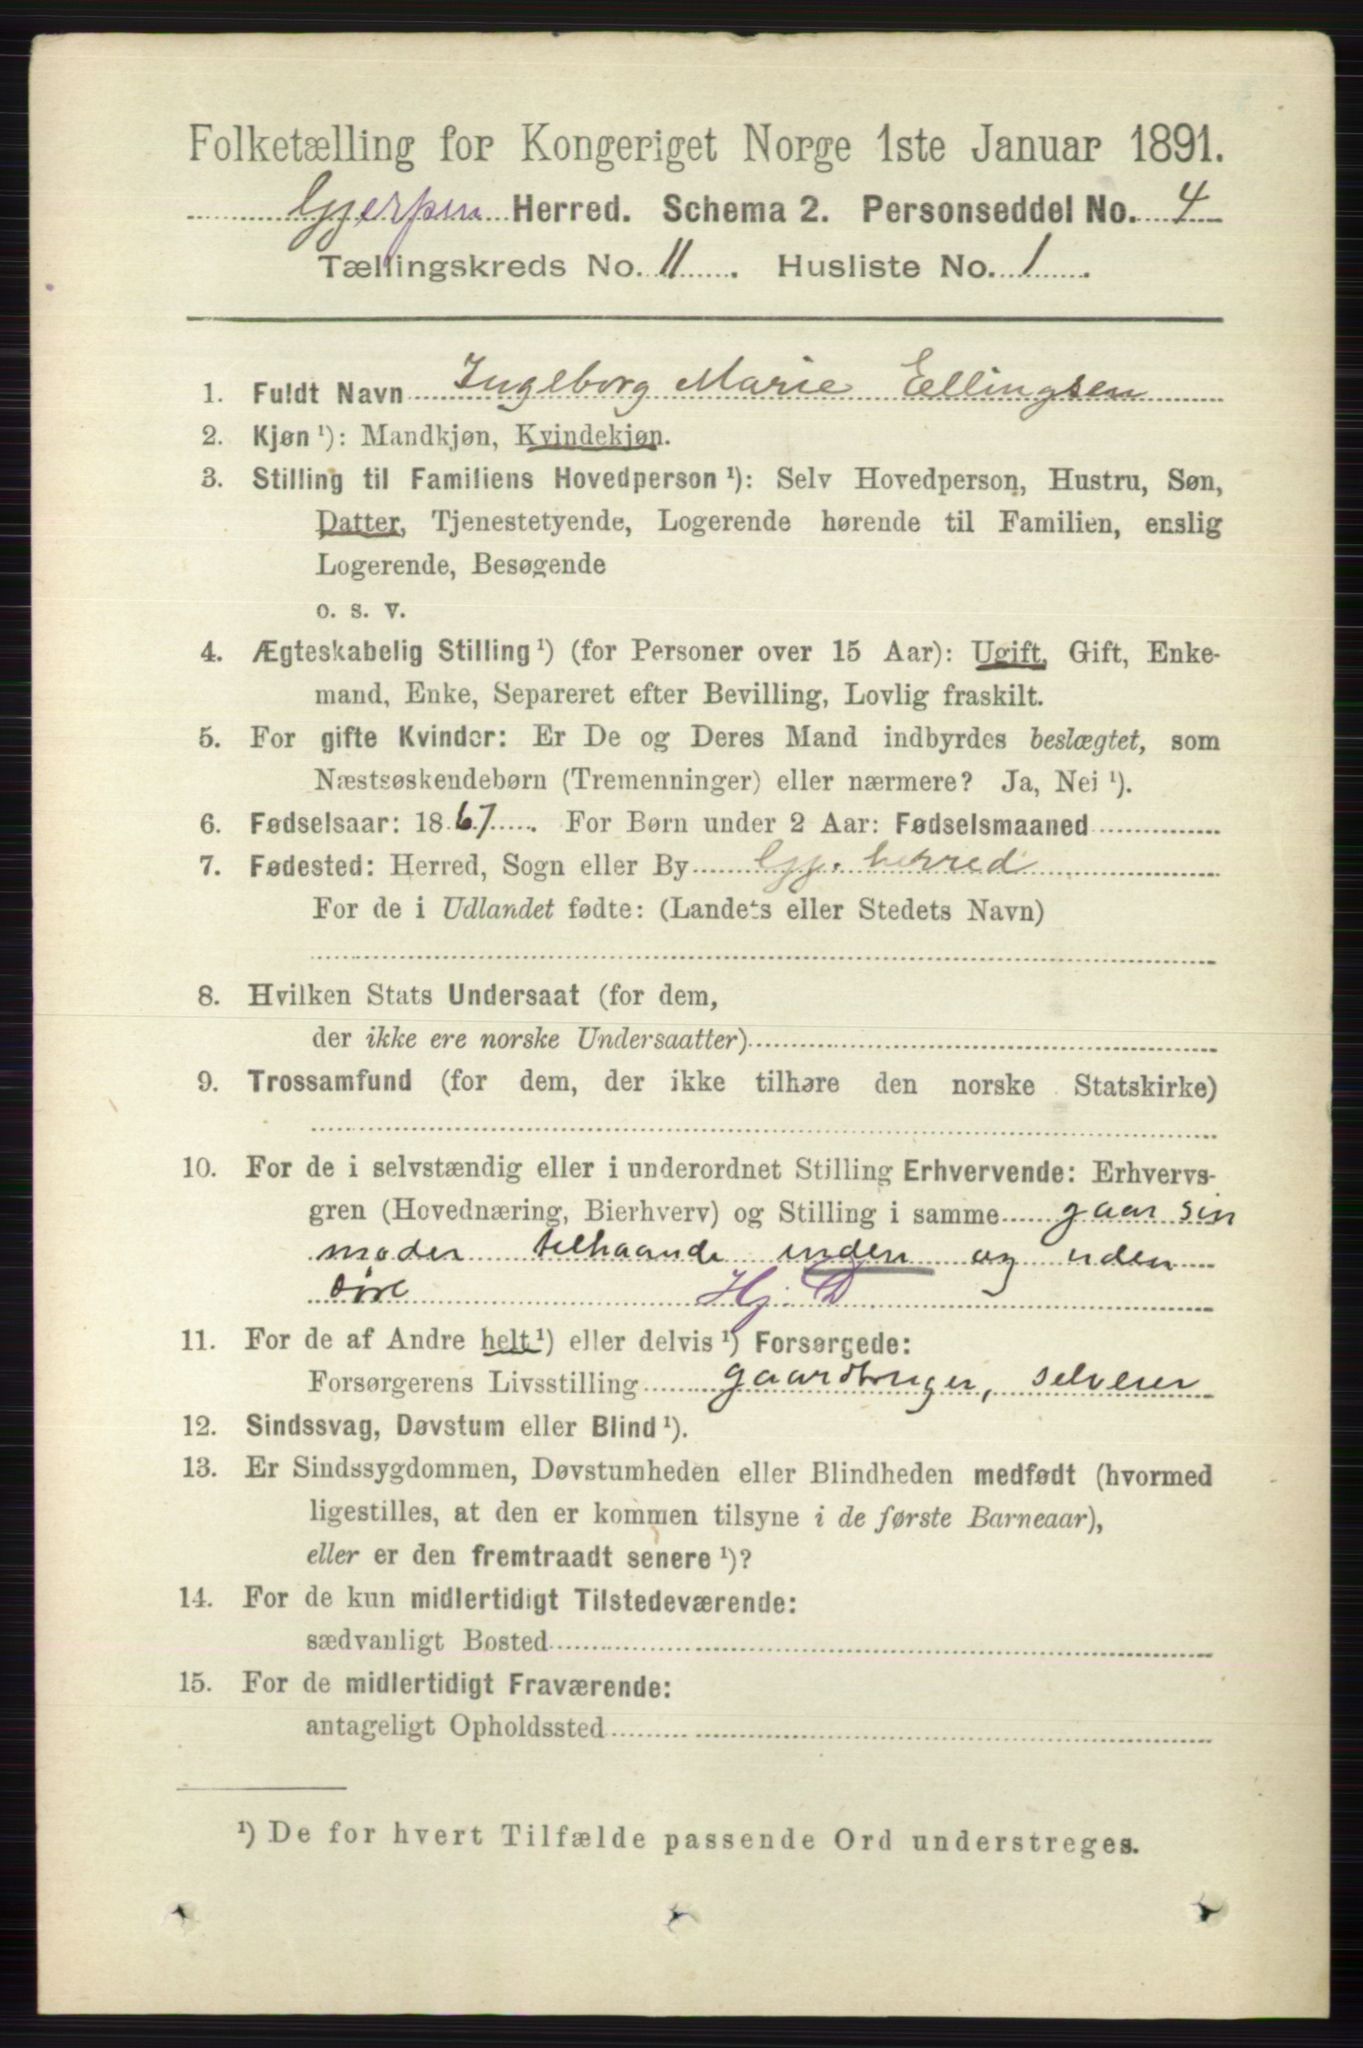 Folketælling for Kongeriget Norge 1ste Januar 1891.
Gjerpen Herred. Schema 2. Personseddel No. 4
Tællingskreds No. 11. Husliste No. 1.
1. Fuldt Navn Ingeborg Marie Ellingsen
2. Kjøn ¹): Mandkjøn, Kvindekjøn.
3. Stilling til Familiens Hovedperson ¹): Selv Hovedperson, Hustru, Søn,
Datter, Tjenestetyende, Logerende hørende til Familien, enslig
Logerende, Besøgende
o. s. v.
4. Ægteskabelig Stilling ¹) (for Personer over 15 Aar): Ugift, Gift, Enke-
mand, Enke, Separeret efter Bevilling, Lovlig fraskilt.
5. For gifte Kvinder: Er De og Deres Mand indbyrdes beslægtet, som
Næstsøskendebørn (Tremenninger) eller nærmere? Ja, Nei ¹).
6. Fødselsaar: 1867. For Børn under 2 Aar: Fødselsmaaned
7. Fødested: Herred, Sogn eller By Gj. herred
For de i Udlandet fødte: (Landets eller Stedets Navn)
8. Hvilken Stats Undersaat (for dem,
der ikke ere norske Undersaatter)
9. Trossamfund (for dem, der ikke tilhøre den norske Statskirke)
10. For de i selvstændig eller i underordnet Stilling Erhvervende: Erhvervs-
gren (Hovednæring, Bierhverv) og Stilling i samme gaar sin
moder tilhaande inden og uden
döre Hj. D
11. For de af Andre helt ¹) eller delvis ¹) Forsørgede:
Forsørgerens Livsstilling gaardbruger, selveier
12. Sindssvag, Døvstum eller Blind ¹).
13. Er Sindssygdommen, Døvstumheden eller Blindheden medfødt (hvormed
ligestilles, at den er kommen tilsyne i de første Barneaar),
eller er den fremtraadt senere ¹)?
14. For de kun midlertidigt Tilstedeværende:
sædvanligt Bosted
15. For de midlertidigt Fraværende:
antageligt Opholdssted
¹) De for hvert Tilfælde passende Ord understreges.